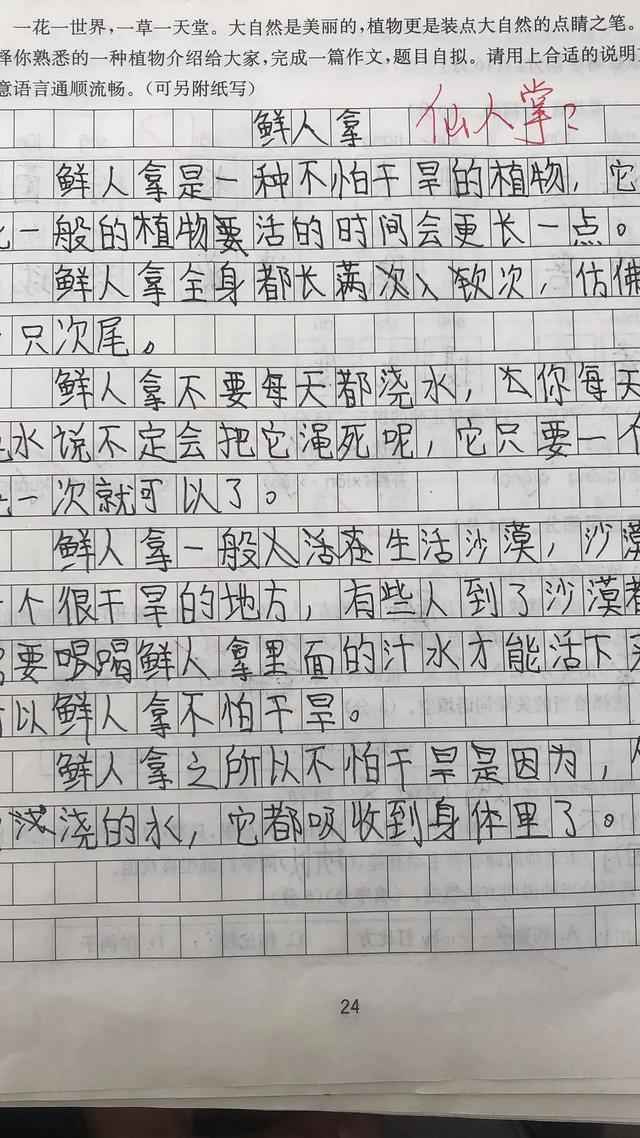 一花一世界，一草一天堂。大自然是美丽的，植物更是装点大自然的点睛之笔。
择你熟悉的一种植物介绍给大家，完成一篇作文，题目自拟。请用上合适的说明
意语言通顺流畅。（可另附纸写）
鲜人拿 仙人掌？
鲜人拿是一种不怕干旱的植物，它
一般的植物要活的时间会更长一点。
鲜人拿全身都长满次软次，仿佛
只次尾。
鲜人拿不要每天都浇水，你每天
水说不定会把它渑死呢，它只要一个
一次就可以了。
鲜人拿一般生活沙漠，沙漠
个很干旱的地方，有些人到了沙漠都
要喝鲜人拿里面的汁水才能活下
以鲜人拿不怕干旱。
鲜人拿之所以不怕干旱是因为，
浇的水，它都吸收到身体里了。
24